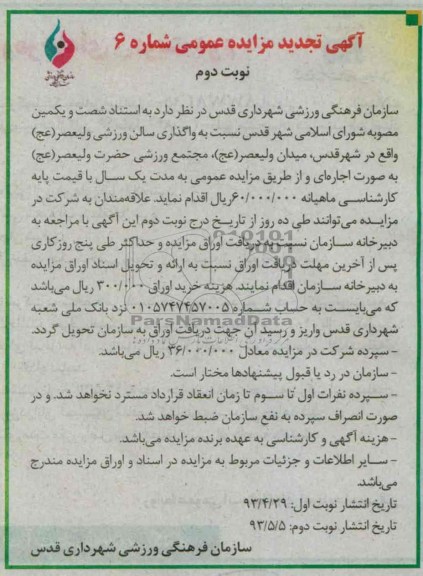 آگهی تجدید مزایده عمومی شماره ۶
نوبت دوم
سازمان فرهنگی ورزشی شهرداری قدس در نظر دارد به استناد شصت و یکمین
مصوبه شورای اسلامی شهر قدس نسبت به واگذاری سالن ورزشی ولیعصر(عج)
واقع در شهرقدس، میدان ولیعصر(عج)، مجتمع ورزشی حضرت ولیعصر(عج)
به صورت اجاره‌ای و از طریق مزایده عمومی به مدت یک سال با قیمت پایه
کارشناسی ماهیانه ۶۰/۰۰۰/۰۰۰ریال اقدام نماید. علاقه‌مندان به شرکت در
مزایده می‌توانند طی ده روز از تاریخ درج نوبت دوم این آگهی با مراجعه به
دبیرخانه سازمان نسبت به دریافت اوراق مزایده و حداکثر طی پنج روزکاری
پس از آخرین مهلت دریافت اوراق نسبت به ارائه و تحویل اسناد اوراق مزایده
به دبیرخانه سازمان اقدام نمایند. هزینه خرید اوراق ۳۰۰/۰۰۰ ریال می‌باشد
که می‌بایست به حساب شماره ۰۱۰۵۷۴۷۴۵۷۰۰۵ نزد بانک ملی شعبه
شهرداری قدس واریز و رسید آن جهت دریافت اوراق به سازمان تحویل گردد.
ParsNamadData
- سپرده شرکت در مزایده معادل ۳۶/۰۰۰/۰۰۰ ریال می‌باشد.
- سازمان در رد یا قبول پیشنهادها مختار است.
- سپرده نفرات اول تا سوم تا زمان انعقاد قرارداد مسترد نخواهد شد. و در
صورت انصراف سپرده به نفع سازمان ضبط خواهد شد.
- هزینه آگهی و کارشناسی به عهده برنده مزایده می‌باشد.
- سایر اطلاعات و جزئیات مربوط به مزایده در اسناد و اوراق مزایده مندرج
می‌باشد.
تاریخ انتشار نوبت اول: ۹۳/۴/۲۹
تاریخ انتشار نوبت دوم: ۹۳/۵/۵
سازمان فرهنگی ورزشی شهرداری قدس